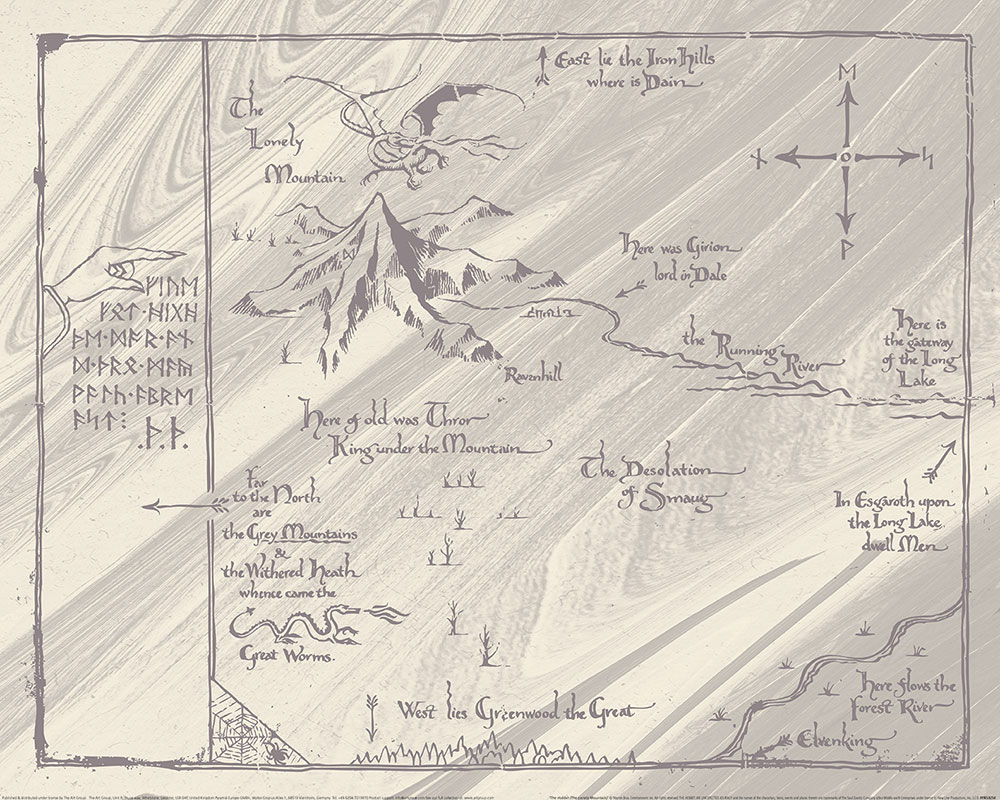 East lie the Iron Hills
where is Dain
The
Lonely
Mountain
ᛖ
ᚾ
ᛋ
ᚹ
ᛞ
ᚠᛁᚢᛖ
ᚠᚩᛏ·ᚻᛁᚷᚻ
ᚦᛖ·ᛞᚩᚱ·ᚫᚾ
ᛞ·ᚦᚱᚩ·ᛗᚫᚣ
ᚹᚫᛚᚳ·ᚫᛒᚱᛖ
ᚫᛋᛏ:
.ᚦ.ᚦ.
Here was Girion
lord in Dale
the Running River
Here is
the gateway
of the Long
Lake
Ravenhill
Here of old was Thror
King under the Mountain
The Desolation
of Smaug
Far
to the North
are
the Grey Mountains
&
the Withered Heath
whence came the
Great Worms.
In Esgaroth upon
the Long Lake
dwell Men
Here flows the
Forest River
West lies Greenwood the Great
Elvenking